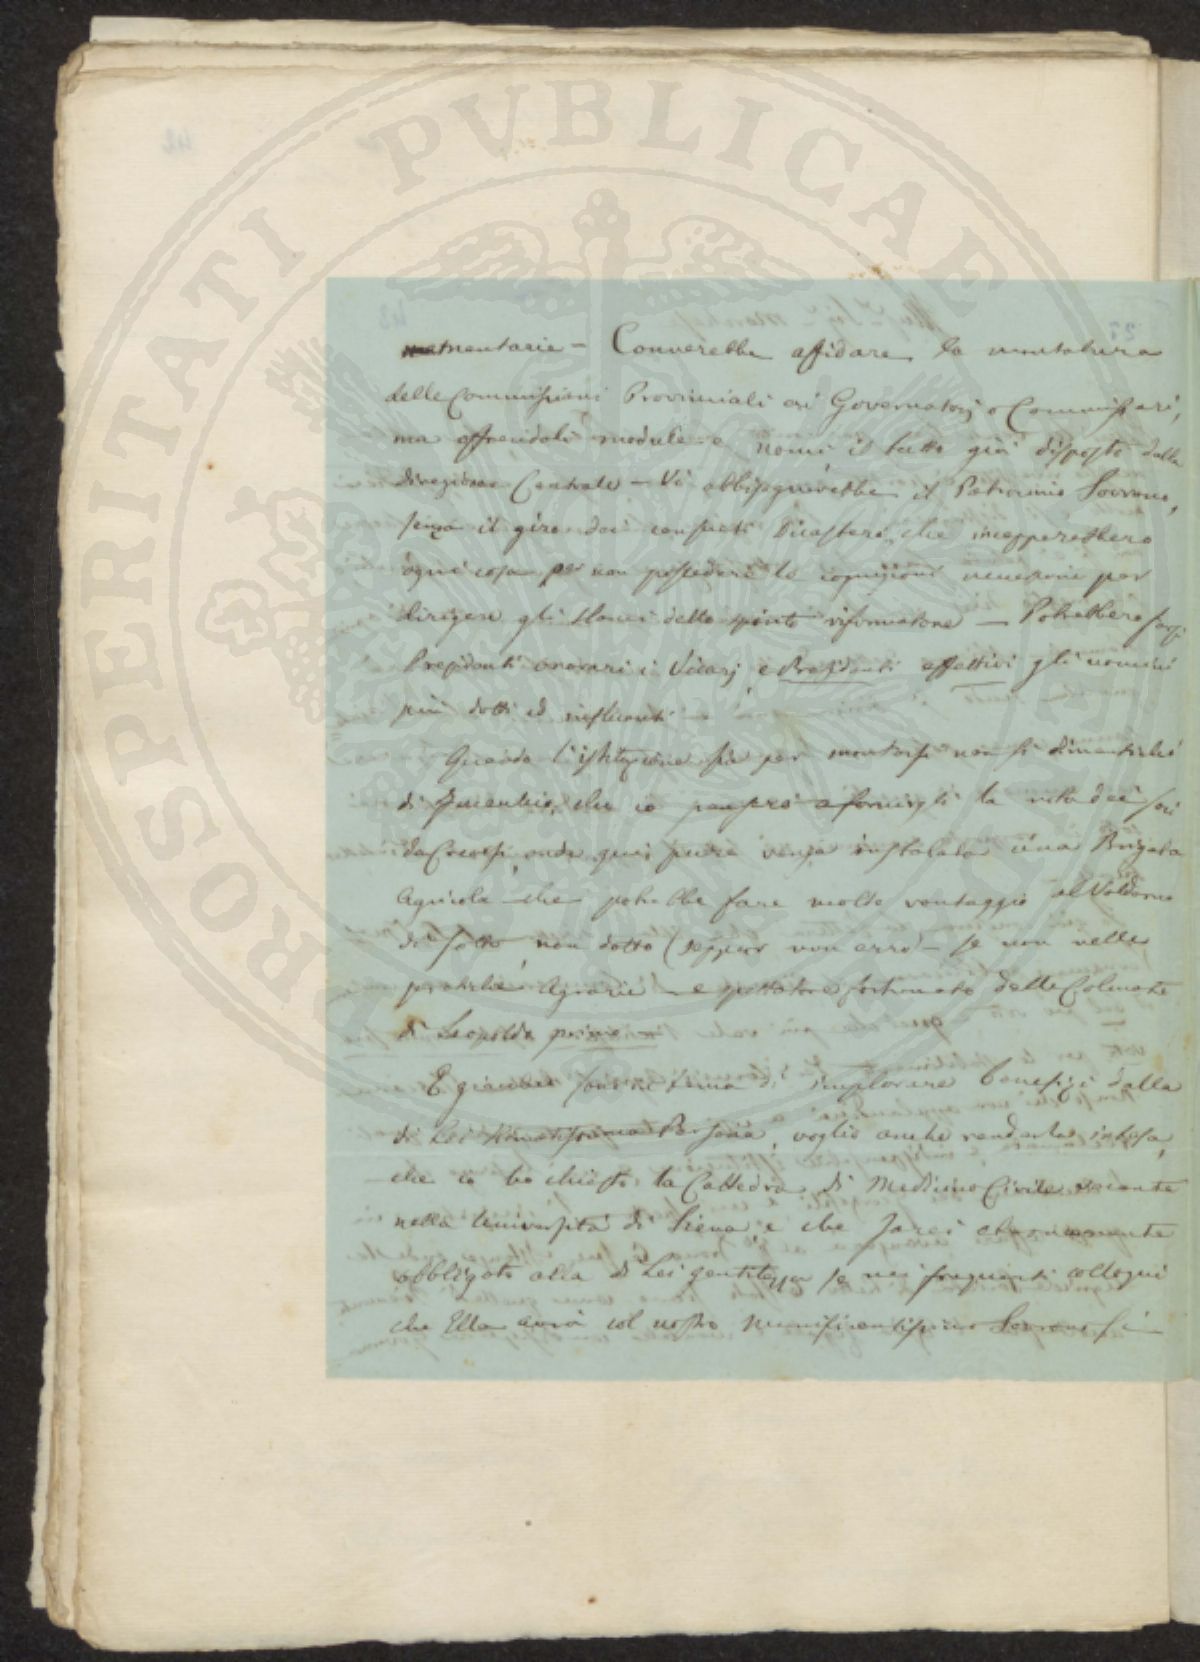 PROSPERITATI PUBLICAE
mentarie – Converebbe affidare la montatura
delle Commissioni Provinciali ai Governatori o Commissari,
ma offrendoli module e nomi, il tutto già disposto dalla
direzione Centrale – Vi abbisognerebbe il Patrocinio Sovrano,
senza il giro dei consueti Dicasteri, che incepperebbero
ogni cosa per non possedere le cognizioni necessarie per
dirigere gli slanci dello spirito riformatore – Potrebbero farsi
Presidenti onorari i Vicarj, e Presidenti effettivi gli uomini
più dotti ed influenti –
Quando l'istituzione sia per montarsi non si dimentichi
di Fucecchio, che io penserò a fornirgli la nota dei soci
da Crearsi, onde quì pure venga installata una Brigata
Agricola che potrebbe fare molto vantaggio al Valdarno
di sotto, non dotto (seppur non erro) – se non nelle
pratiche Agrarie – e spettatore fortunato delle Colmate
di Leopoldo primo
E giacchè sono in tema di implorare benefizi dalla
di Lei Umanissima Persona, voglio anche renderla intesa,
che io ho chiesto la Cattedra di Medicina Civile vacante
nella Università di Siena e che sarei
obbligato alla di Lei gentilezza se nei frequenti colloqui
che Ella avrà col nostro Munificentissimo Sovrano si